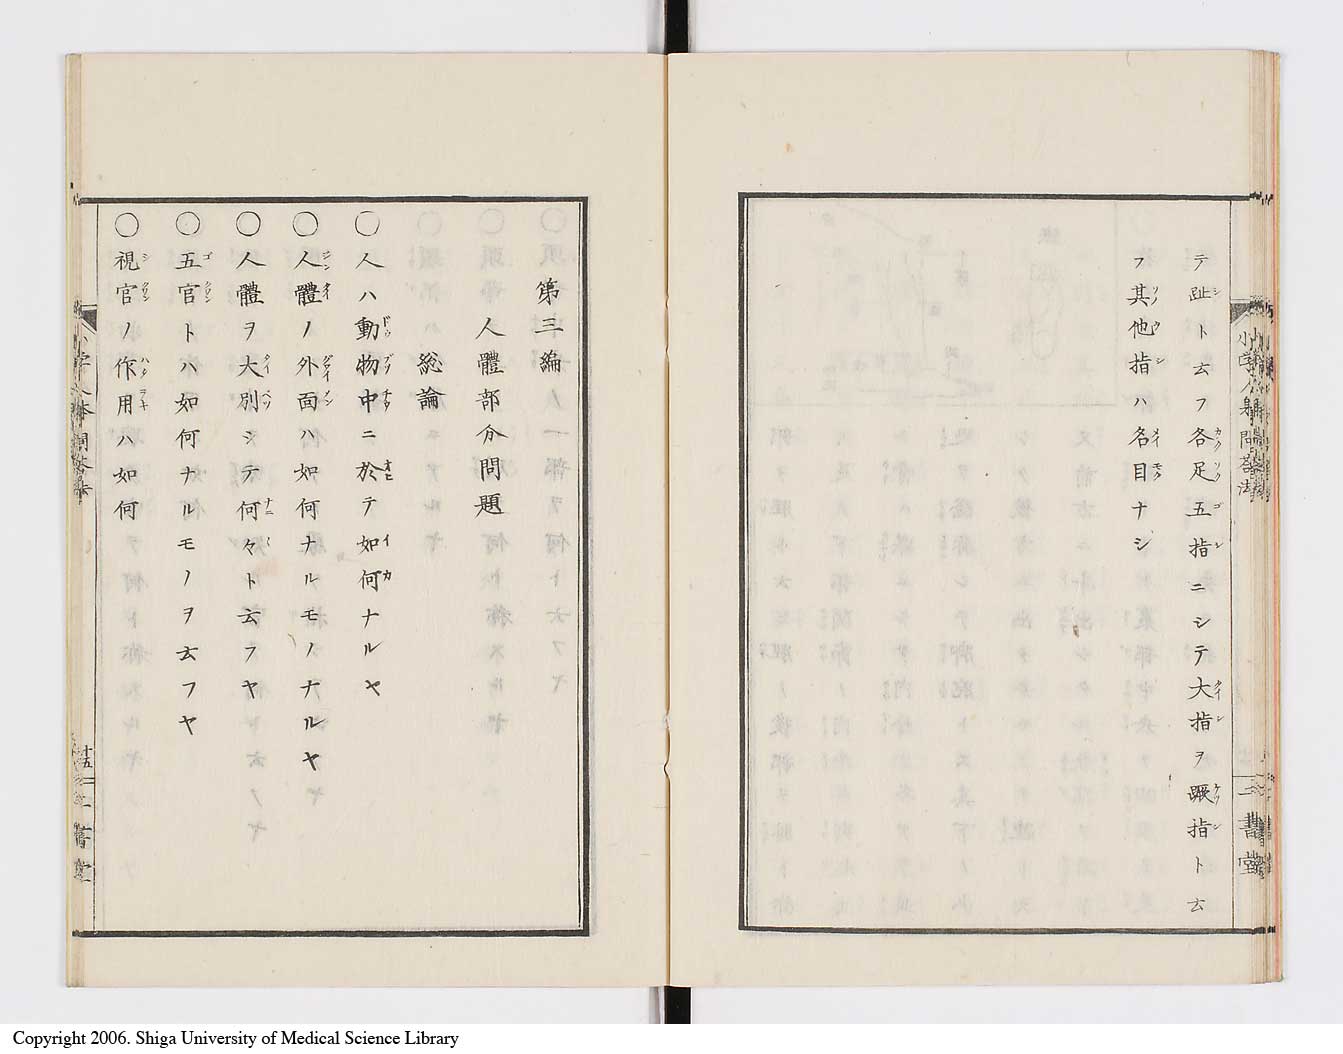 テ趾ト云フ各足五指ニシテ大指ヲ蹶指ト云
フ其他指ハ名目ナシ
小学人身問答法
二書堂
第三編
人體部分問題
総論
〇人ハ動物中ニ於テ如何ナルヤ
〇人體ノ外面ハ如何ナルモノナルヤ
〇人體ヲ大別シテ何々ト云フヤ
〇五官トハ如何ナルモノヲ云フヤ
〇視官ノ作用ハ如何
十五
Copyright 2006. Shiga University of Medical Science Library